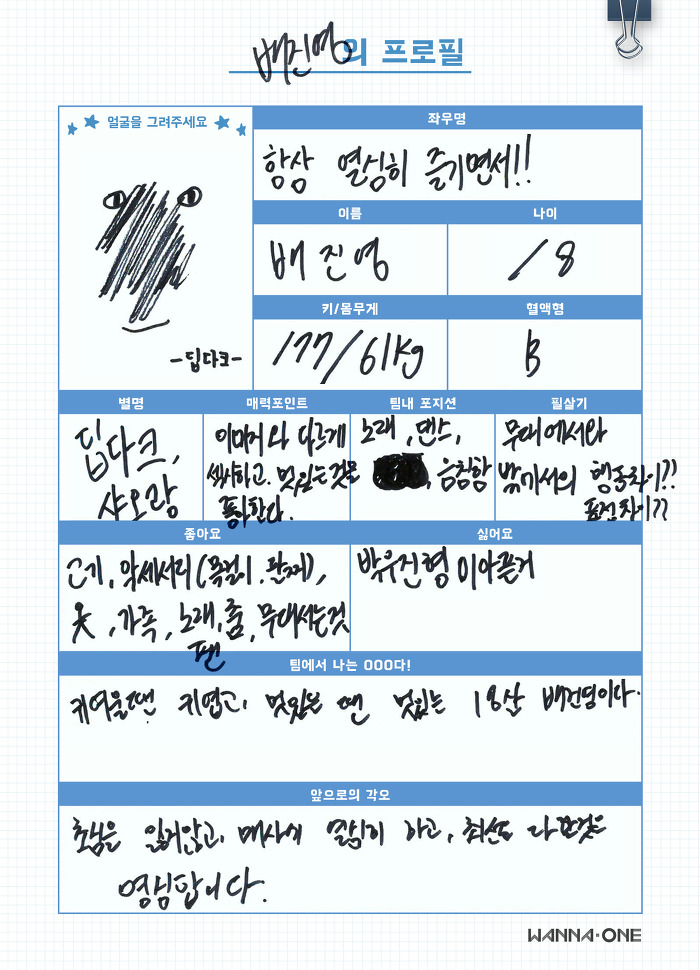 배진영의 프로필
얼굴을 그려주세요
-딥다크-
좌우명
항상 열심히 즐기면서!!
이름
나이
배진영
18
키/몸무게
혈액형
177/61kg
B
별명
매력포인트
팀내 포지션
필살기
딥다크,
샤오랑
이미지와 다르게
섹시하고. 멋있는것을
좋아한다.
노래, 댄스,
, 음침함
무대에서와
밖에서의 행동차이??
표정차이??
좋아요
싫어요
고기, 악세서리(목걸이, 팔찌),
옷, 가족, 노래, 춤, 무대서는것
팬
박우진형이 아픈거
팀에서 나는 OOO다!
귀여울땐 귀엽고, 멋있을 땐 멋있는 18살 배진영이다.
앞으로의 각오
초심을 잃지않고, 매사에 열심히 하고, 최선을 다할것을
영심합니다.
WANNA·ONE